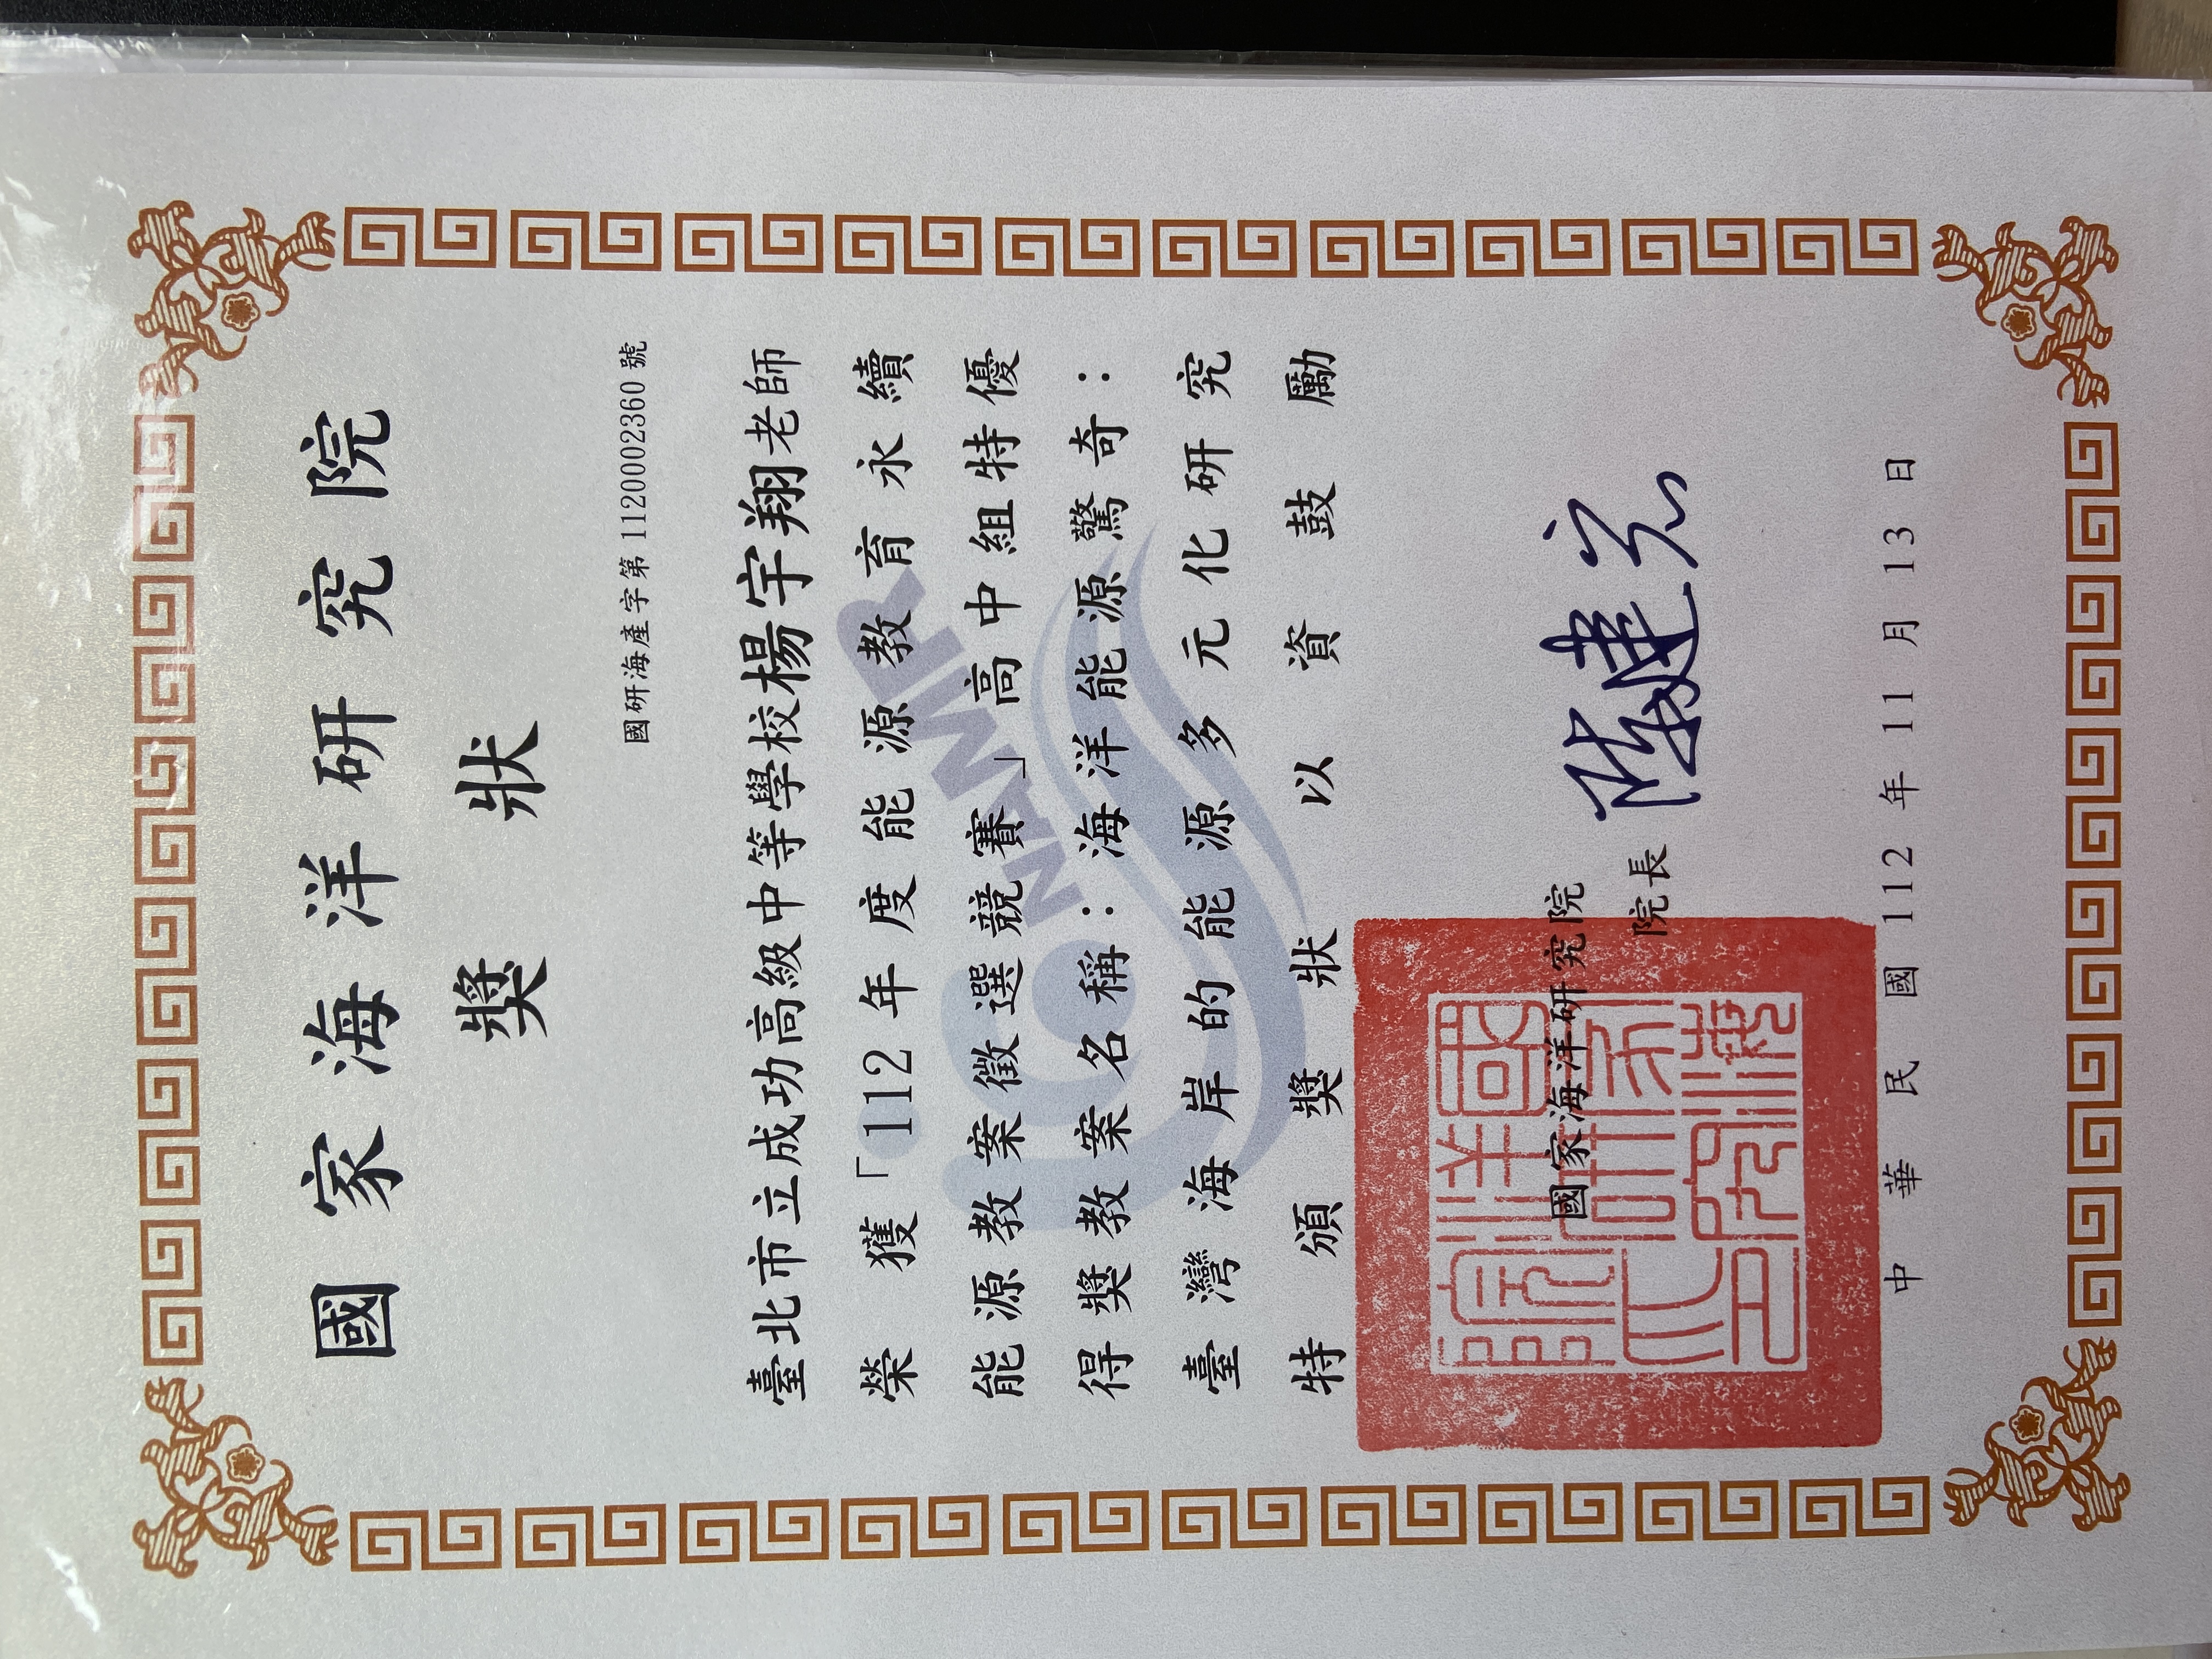 國家海洋研究院
獎狀
國研海產字第 11200002360 號
臺北市立成功高級中等學校楊宇翔老師
榮獲「112年度能源教育永續
能源教案徵選競賽」高中組特優
得獎教案名稱：海洋能源驚奇：
臺灣海岸的能源多元化研究
特頒獎狀以資鼓勵
NAMR
國家海洋研究院
院長
陸建宏
國家海洋研究院印
中華民國 112 年 11 月 13 日